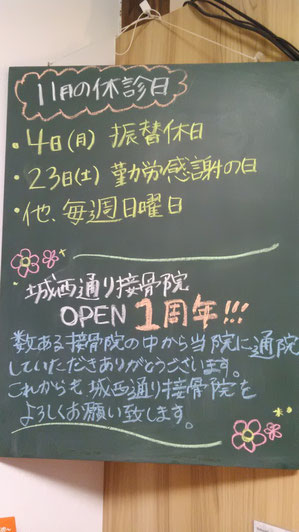 11月の休診日
・4日(月) 振替休日
・23日(土) 勤労感謝の日
・他、毎週日曜日
城西通り接骨院
OPEN 1周年!!!
数ある接骨院の中から当院に通院
していただきありがとうございます。
これからも城西通り接骨院を
よろしくお願い致します。